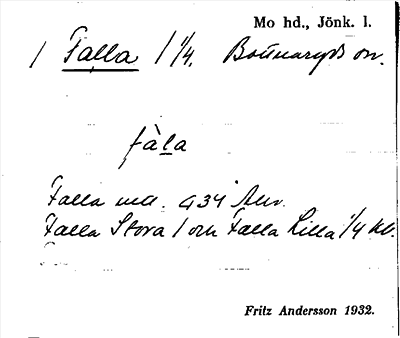 Mo hd., Jönk. l.
1 Falla 1 1/4. Bottnaryds sn.
fàla
Falla med. 934 har.
Falla Stora 1 och Falla Lilla 1/4 hl.
Fritz Andersson 1932.